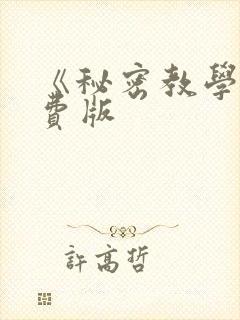 《秘密教學
費版
許高哲